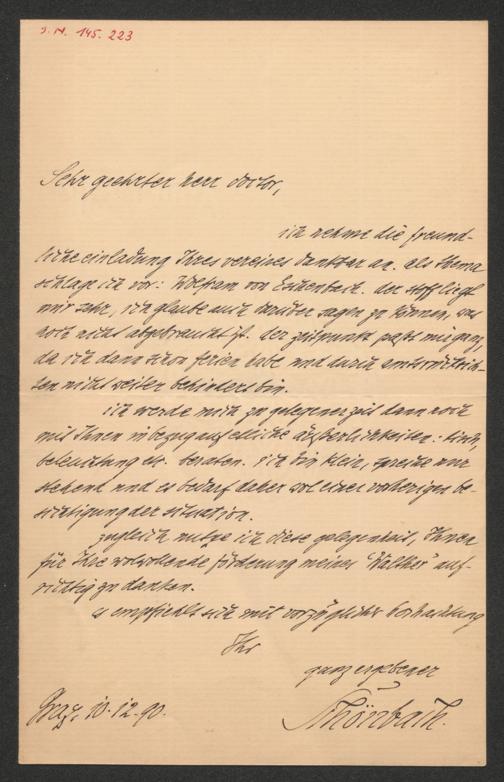 J. N. 145.223
Sehr geehrter herr doctor,
ich nehme die freund-
liche einladung Ihres vereines dankbar an. als thema
schlage ich vor: Wolfram von Eschenbach. der stoff liegt
mir sehr, ich glaube auch darüber sagen zu können, was
noch nicht abgebraucht ist. der zeitpunkt passt mir ganz,
da ich dann schon ferien habe und durch amts
ten nicht weiter behindert bin.
ich werde mich zu gelegener zeit dann noch
mit Ihnen in bezug auf etliche äußerlichkeiten: tisch,
beleuchtung etc. beraten. ich bin klein, spreche nur
stehend und es bedarf daher wol einer vorherigen be-
sichtigung der situation.
zugleich nutze ich diese gelegenheit, Ihnen
für Ihre wolwollende förderung meines 'Walther' auf-
richtig zu danken.
es empfiehlt sich mit vorzüglicher hochachtung
Ihr
ganz ergebener
Schönbach.
Graz, 10.12.90.